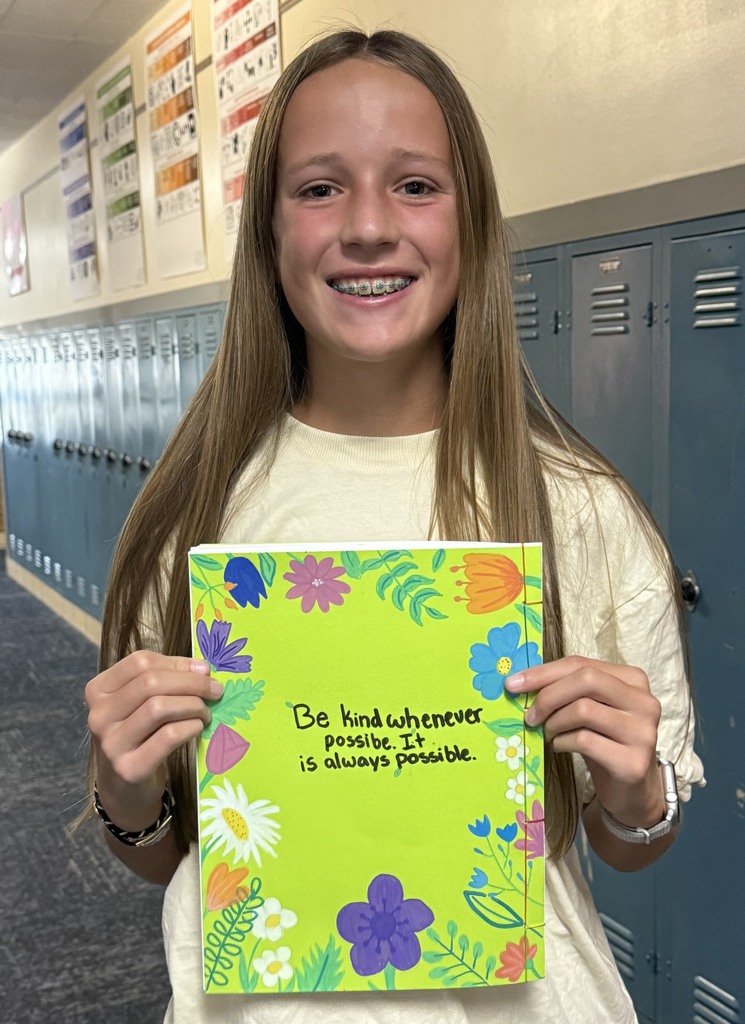 Be kind whenever
possibe. It
is always possible.